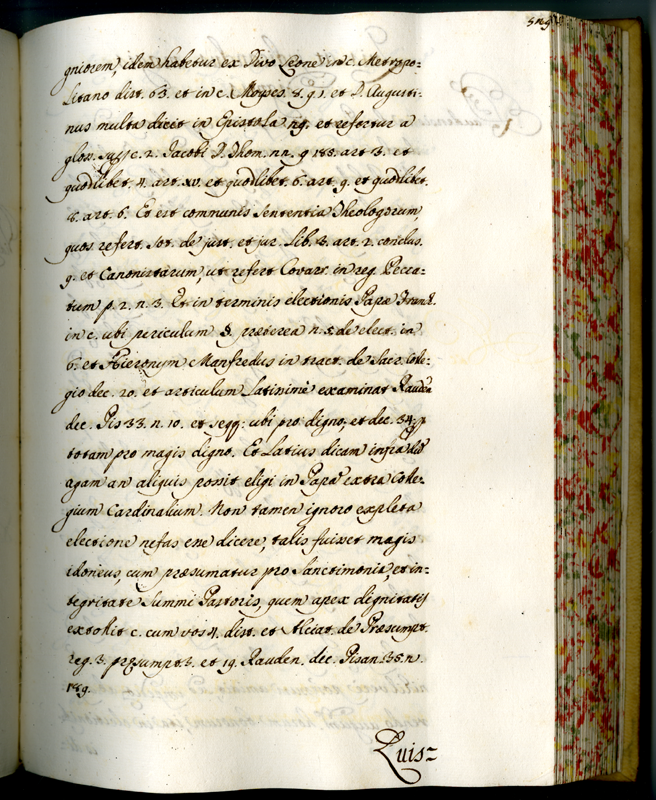 gniorem, idem habetur ex Divo Leone in c. Metropo-
litano dist. 63. et in c. Moyses. 8. q. 1. et D. Augusti-
nus multa dicit in Epistola et refertur a
glos. c. 2. Jacobi D. Thom. nn. q 185. art 3. et
quodliber. 4. art. xv. et quodliber. 6. art. 9. et quodliber.
art. 6. Et est communis sententia Theologorum
quos refert. Sot. de just. et jur. Lib. 3. art. 2. conclus.
9. et Canonistarum, ut refert Covarr. in reg. Pecca-
tum p. 2. n. 3. Et in terminis electionis Papæ
in c. ubi periculum §. præterea n. 5. de elect. in
6. et Hieronym Manfredus in tract. de Sacr. Cole-
gio dec. 20. et articulum latinimè examinat Rauden
dec. Pis 33. n. 10. et seqq: ubi pro digno, et dec. 34. p
totam pro magis digno. Et latius dicam infra
agam an aliquis possit eligi in Papa extra Cole-
gium Cardinalium. Non tamen ignoro expleta
electione nefas esse dicere, talis fuisset magis
idoneus, cum præsumatur pro Sanctimonia, et in-
tegritate Summi Pastoris, quem apex dignitatis
extollit c. cum vos 4. dist. et Alciat. de Præsumpt.
reg. 3. præsumpt 3. et 19. Rauden. dec. Pisan. 35. n.
Quis-